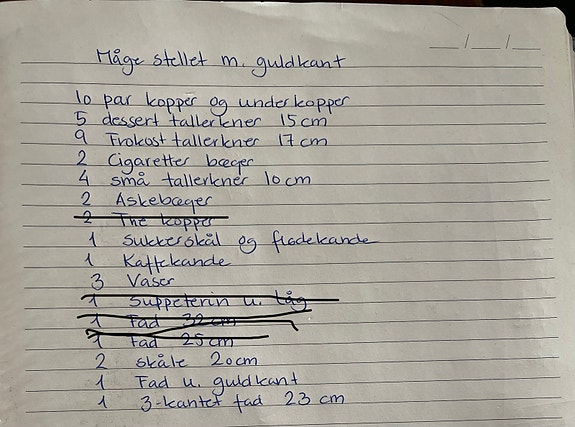 Måge stellet m. guldkant
10 par kopper og underkopper
5 dessert tallerkner 15 cm
9 Frokost tallerkner 17 cm
2 Cigaretter bæger
4 små tallerkner 10 cm
2 Askebæger
2 The kopper
1 Sukkerskål og flødekande
1 Kaffekande
3 Vaser
1 Suppeterin u. låg
1 Fad 32 cm
1 Fad 25 cm
2 skåle 20 cm
1 Fad u. guldkant
1 3-kantet fad 23 cm